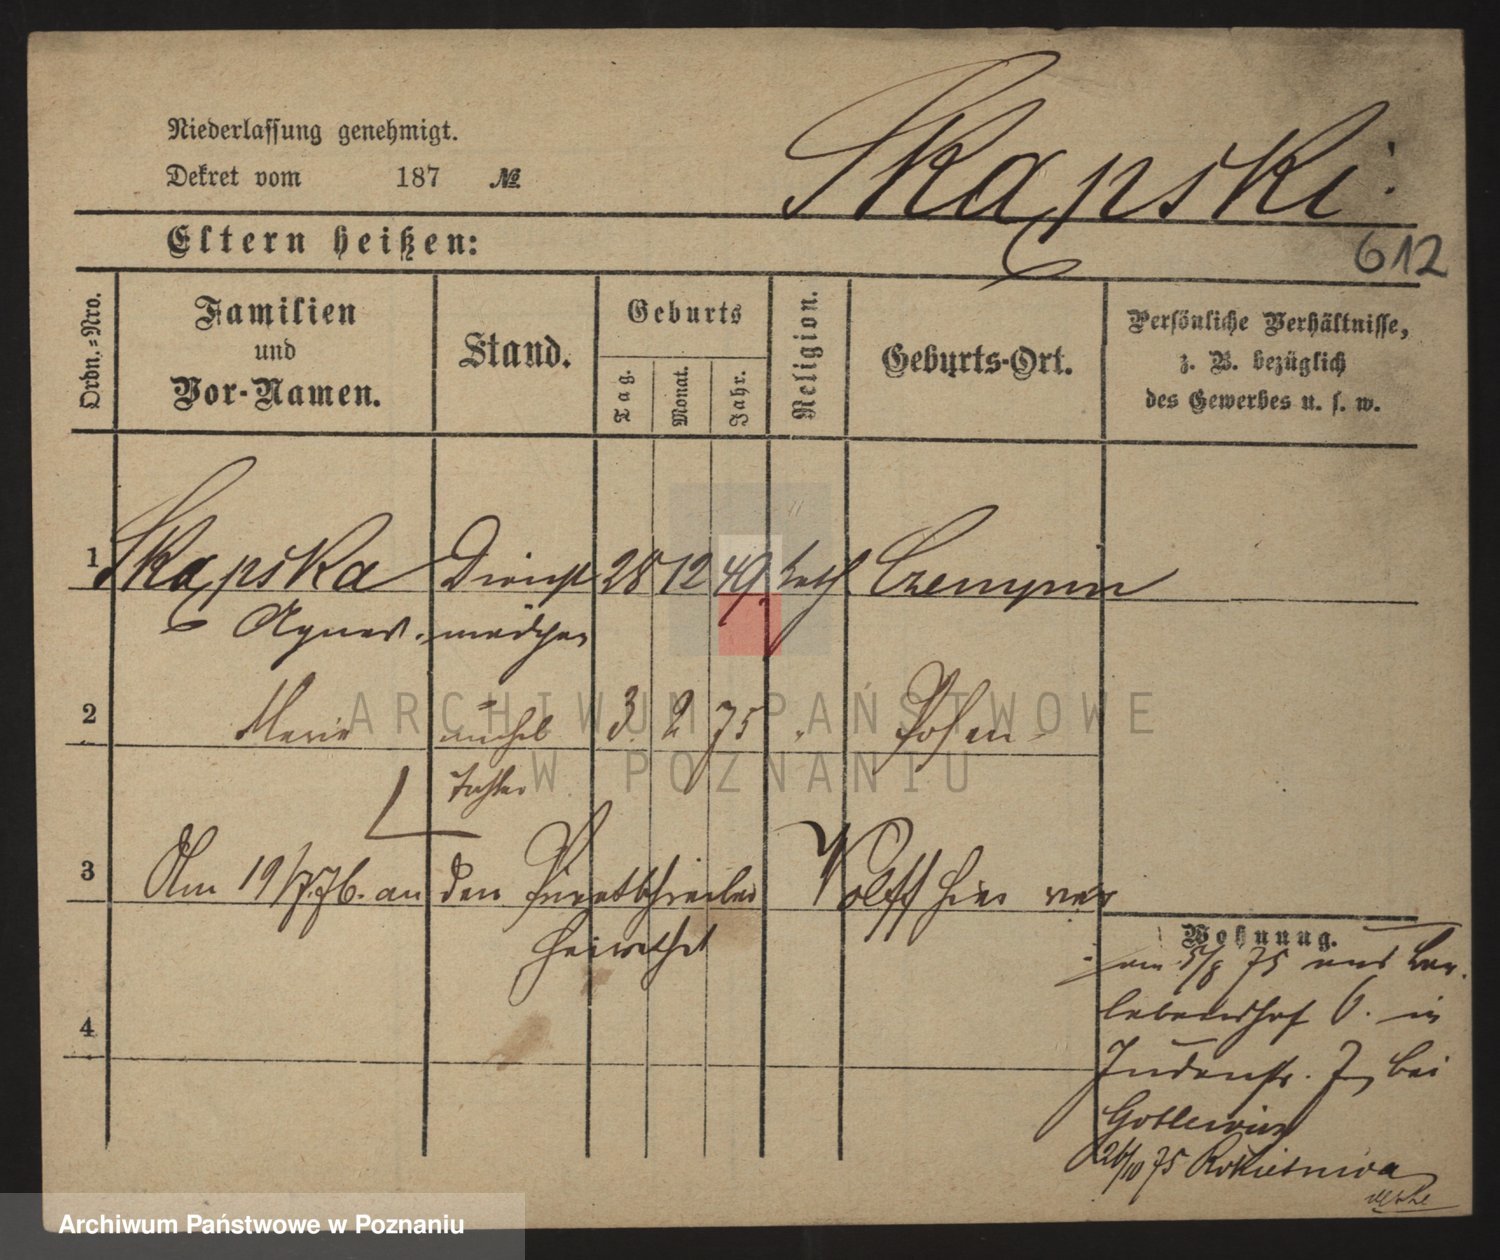 Niederlassung genehmigt.
Dekret vom 187 №
Skapski
612
Eltern heißen:
Ordn.-Nro.
Familien und Vor-Namen.
Stand.
Geburts
Tag.
Monat.
Jahr.
Religion.
Geburts-Ort.
Persönliche Verhältnisse, z. B. bezüglich des Gewerbes u. s. w.
1 Skapska Dienst 28 12 49 kath Czempin
Agnes mädchen
2 Marie unehel 3 2 75 Posen
Tochter
3 Am 19/7.76. an den Wolff hier ver
heirathet
4
Wohnung.
am 5/8 75 aus
6. in
Judenstr. 7, bei
26/10 75 Rokietnica
ARCHIWUM PAŃSTWOWE
W POZNANIU
Archiwum Państwowe w Poznaniu